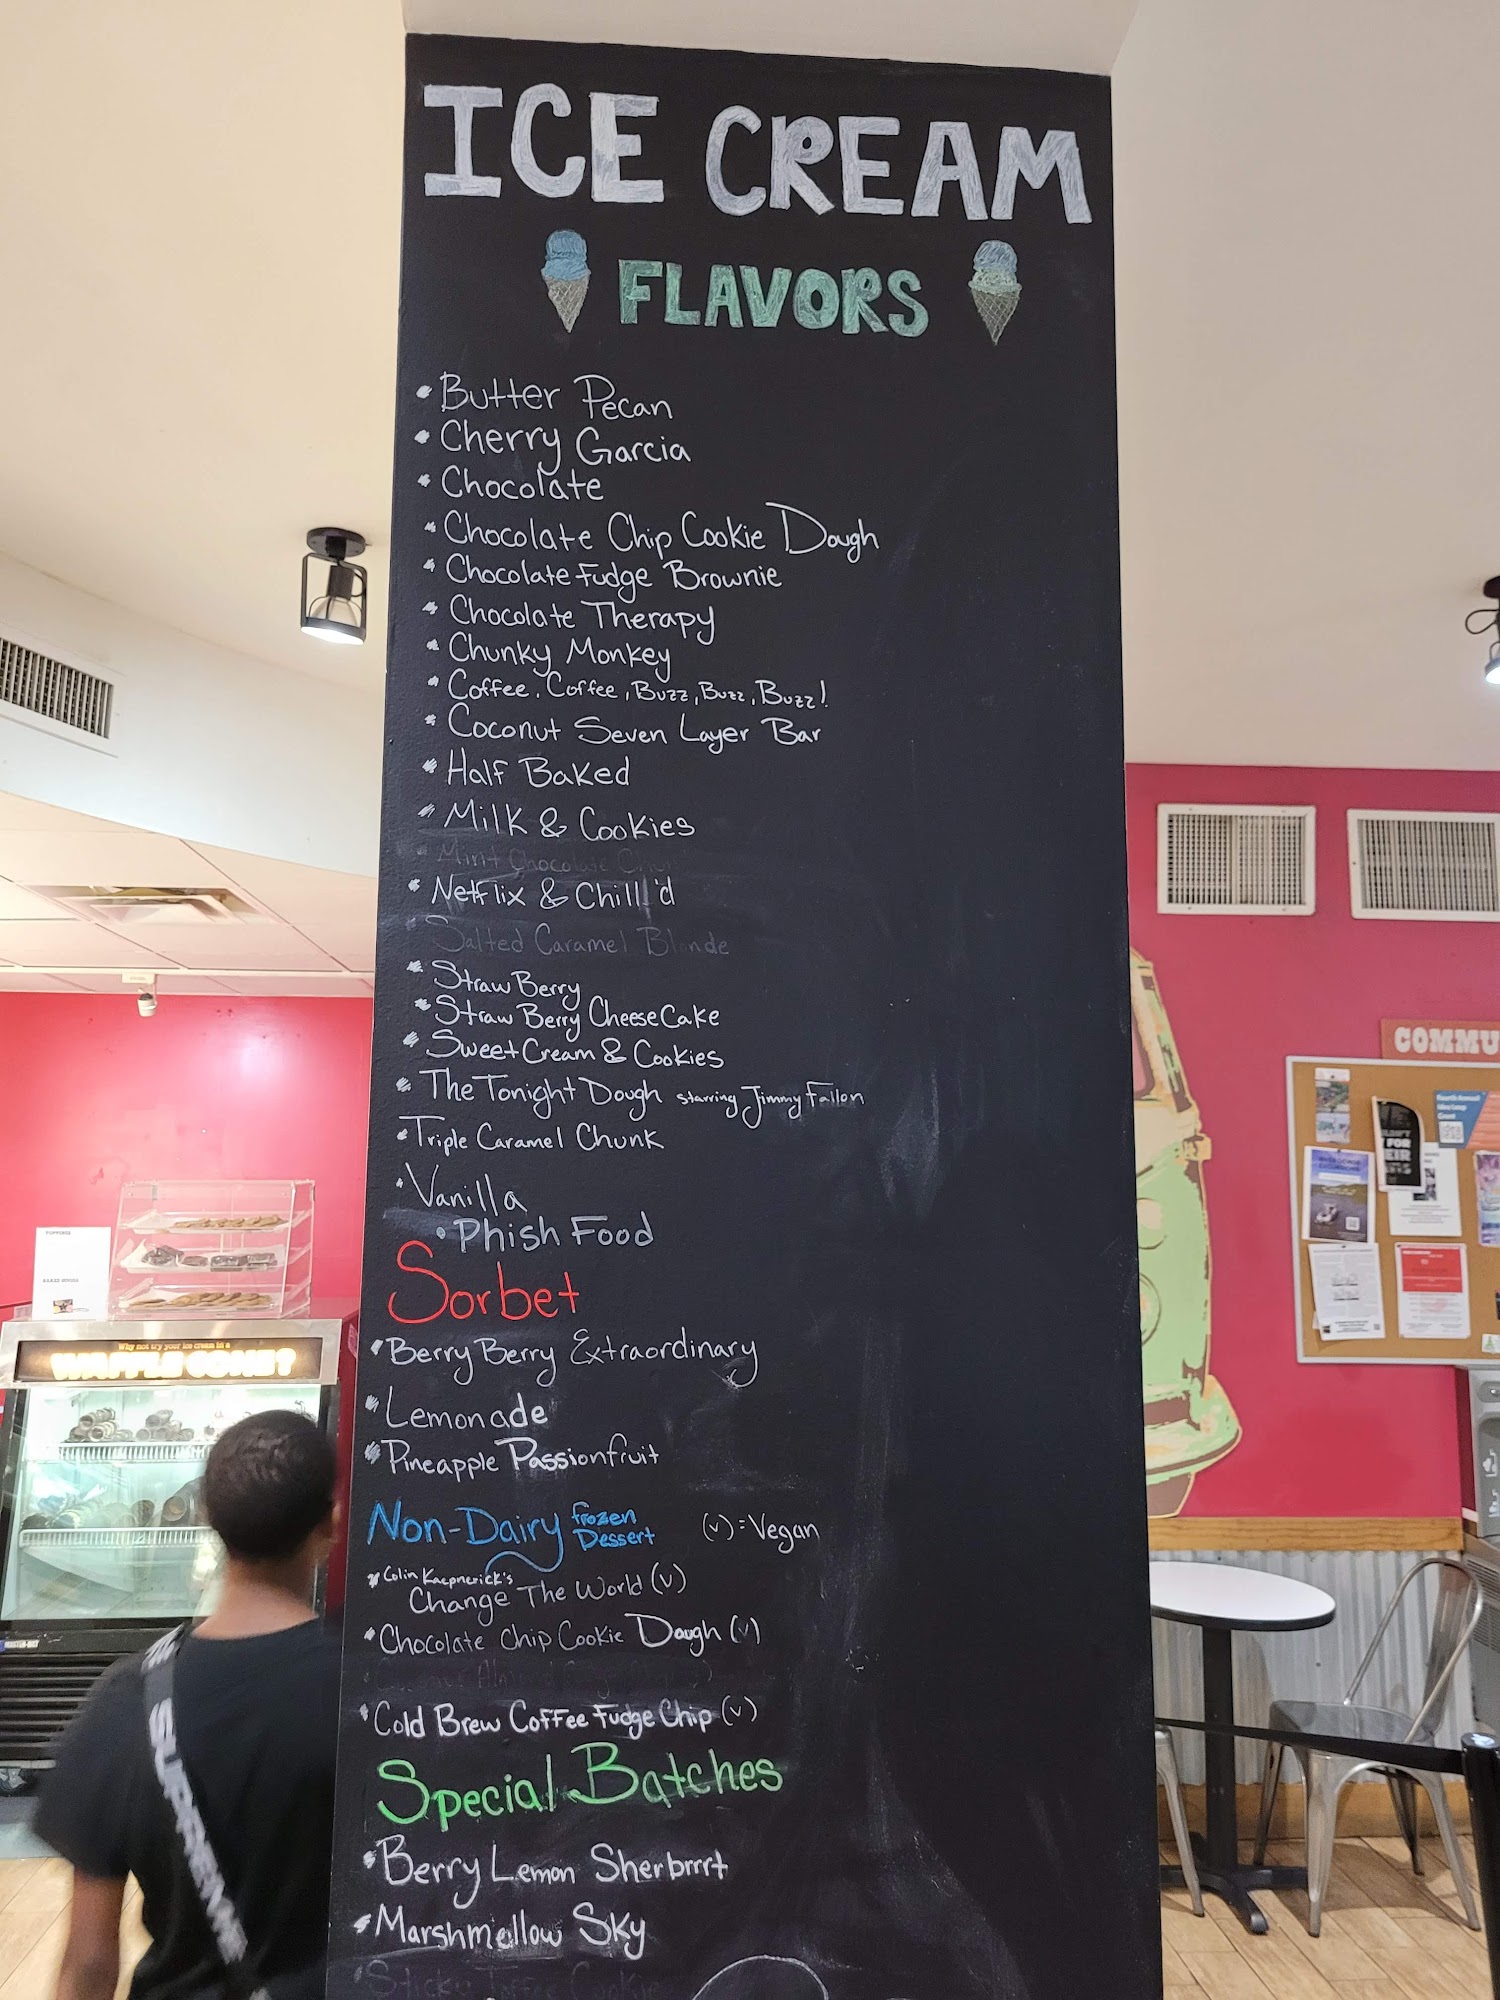 ICE CREAM
FLAVORS
Butter Pecan
Cherry Garcia
Chocolate
Chocolate Chip Cookie Dough
Chocolate Fudge Brownie
Chocolate Therapy
Chunky Monkey
Coffee, Coffee, Buzz, Buzz, Buzz!
Coconut Seven Layer Bar
Half Baked
Milk & Cookies
Mint Chocolate
Netflix & Chill'd
Salted Caramel Blonde
StrawBerry
StrawBerry CheeseCake
Sweet Cream & Cookies
The Tonight Dough starring Jimmy Fallon
Triple Caramel Chunk
Vanilla
Phish Food
Sorbet
Berry Berry Extraordinary
Lemonade
Pineapple Passionfruit
Non-Dairy Frozen Dessert (v) = Vegan
Colin Kaepnerick's
Change The World (v)
Chocolate Chip Cookie Dough (v)
Cold Brew Coffee Fudge Chip (v)
Special Batches
Berry Lemon Sherbrrrt
Marshmellow Sky
COMMU
TOPPINGS
BAKED GOODS
Why not try your ice cream in a
WAFFLE CONE?
SUPREME